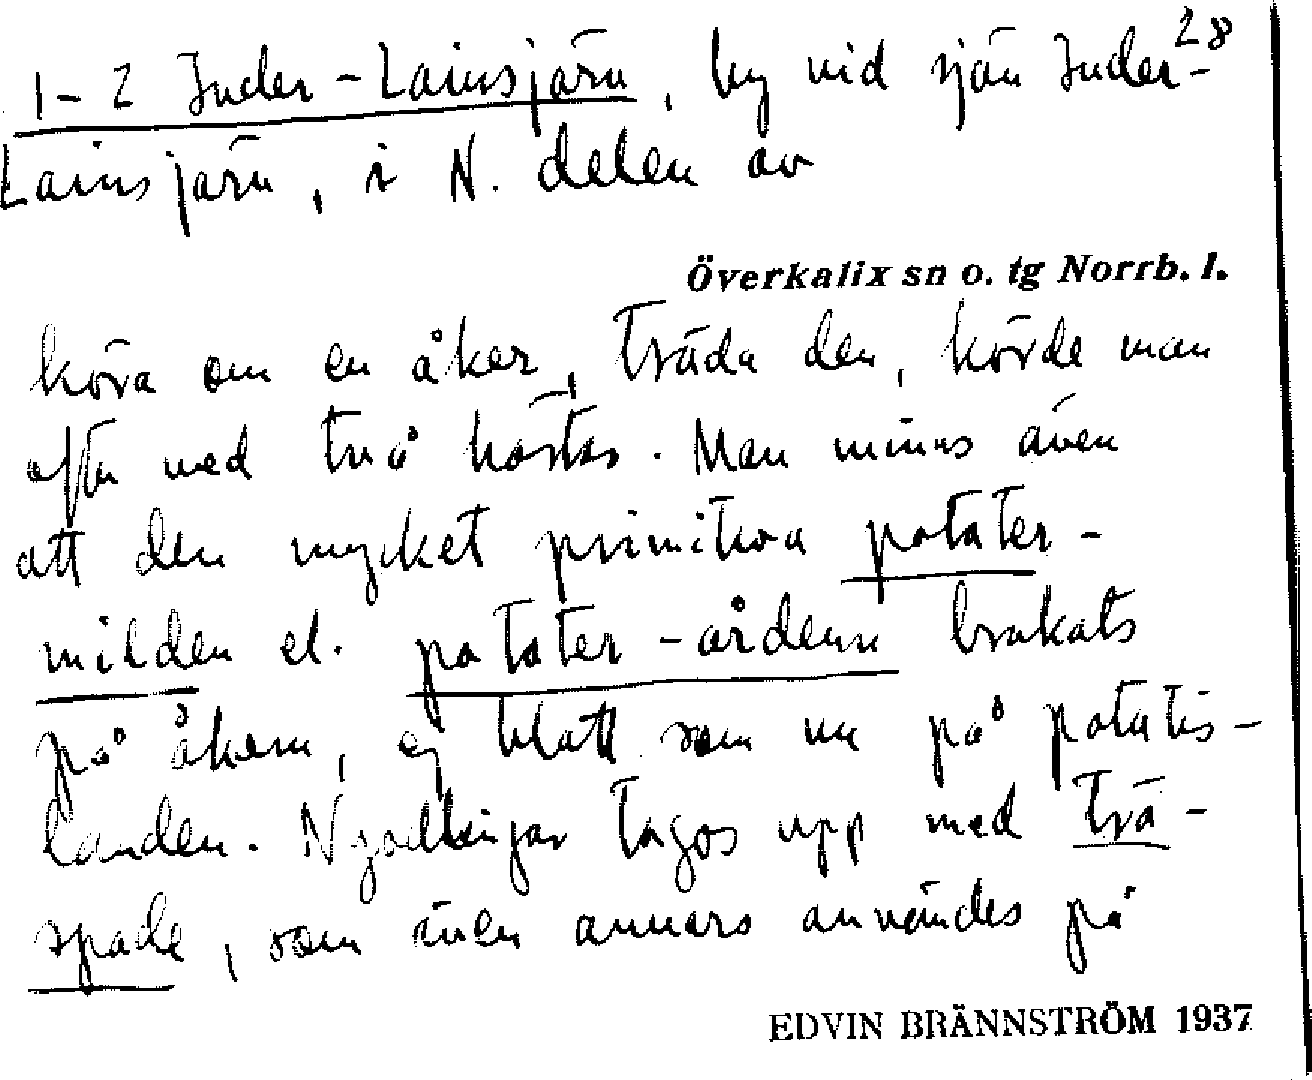 28
1-2 Inder-Lainsjärn, by vid sjön Inder-
Lainsjärn, i N. delen av
Överkalix sn o. tg Norrb. l.
köra om en åker, träda den, körde man
ofta med två hästar. Man minns även
att den mycket primitiva potater-
milden el. potater-årdern brukats
på åkern, ej blott som nu på potatis-
landen. Nyodlingar togos upp med trä-
spade, som även annars användes på
EDVIN BRÄNNSTRÖM 1937